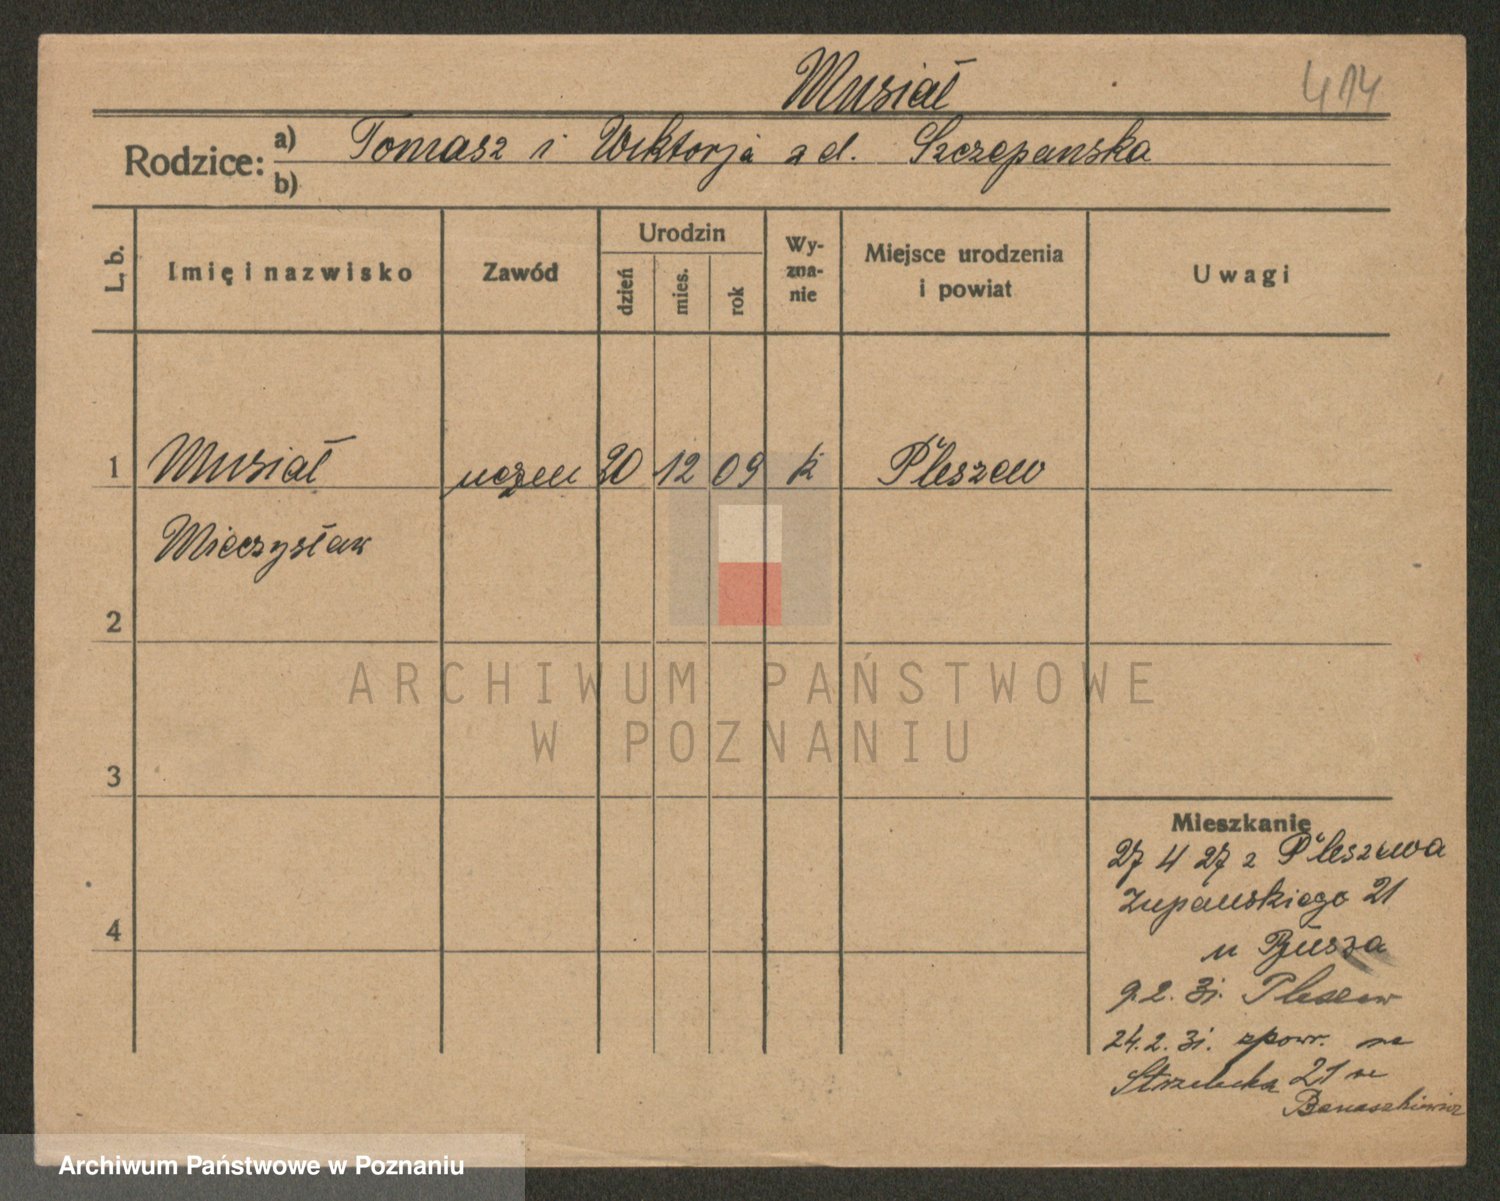 Musiał 414
Rodzice: a) Tomasz i Wiktorja z d. Szczepanska
b)
L. b. Imię i nazwisko Zawód Urodzin dzień mies. rok Wyznanie Miejsce urodzenia i powiat Uwagi
1 Musiał uczeń 20 12 09 k Pleszew
Mieczysław
2
3
4
Mieszkanie
27 4 27 z Pleszewa
Zupańskiego 21
u
9.2. 31. Pleszew
24.2.31. zpowr. na
Strzelecka 21 u
Banaszkiewicz
ARCHIWUM PAŃSTWOWE
W POZNANIU
Archiwum Państwowe w Poznaniu